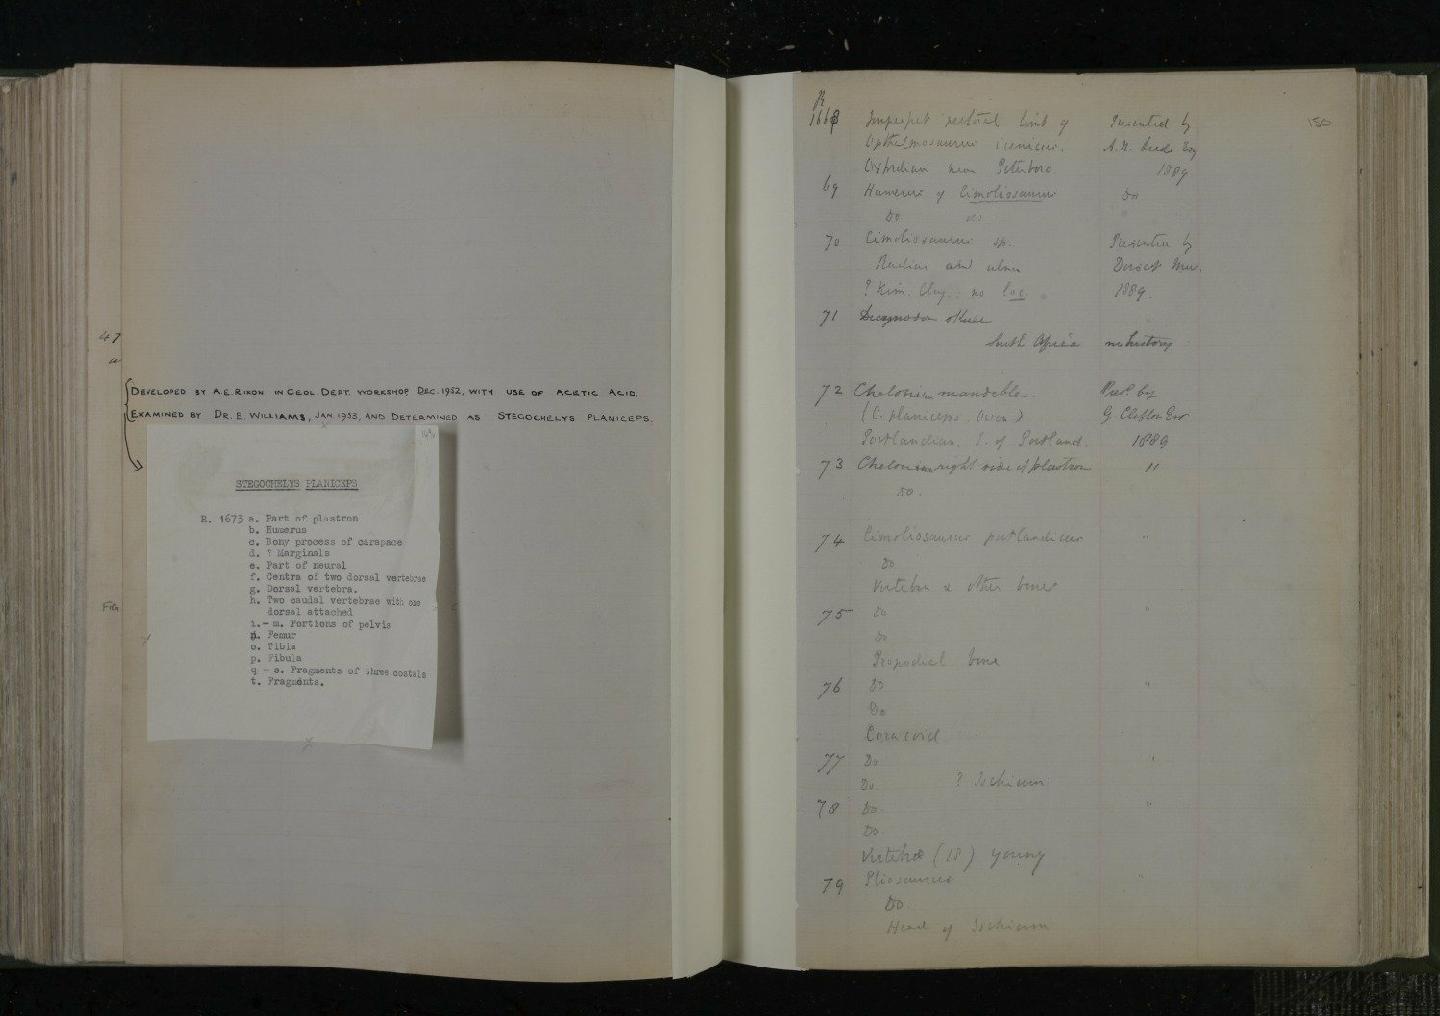 47
a
DEVELOPED BY A.E. RIXON IN GEOL DEPT. WORKSHOP DEC. 1952, WITH USE OF ACETIC ACID.
EXAMINED BY DR. E. WILLIAMS, JAN 1953, AND DETERMINED AS STEGOCHELYS PLANICEPS.
STEGOCHELYS PLANICEPS
R. 1673 a. Part of plastron
b. Humerus
c. Bony process of carapace
d. ? Marginals
e. Part of neural
f. Centra of two dorsal vertebrae
g. Dorsal vertebra.
h. Two caudal vertebrae with one
dorsal attached
i.- m. Portions of pelvis
n. Femur
o. Tibia
p. Fibula
q - s. Fragments of three costals
t. Fragments.
150
R
1668 Imperfect pectoral limb of Presented by
Opthalmosaurus icenicus. A.N. Leeds Esq
Oxfordian near Peterboro 1889
69 Humerus of Cimoliosaurus Do
Do do
70 Cimoliosaurus sp. Presented by
Radius and ulna Dorset Mus.
? Kim. Clay. no loc. 1889.
71 Dicynodon skull
South Africa no history
72 Chelonian mandible. Pres. by
(C. planiceps, Owen) G. Clifton Esq
Portlandian. I. of Portland. 1889
73 Chelonian right side of plastron "
Do.
74 Cimoliosaurus portlandicus "
Do
Vertebra & other bones
75 Do "
Do
Propodial bone
76 Do "
Do
Coracoid
77 Do "
Do ? Ischium
78 Do "
Do
Vertebræ (18) young
79 Pliosaurus "
Do
Head of Ischium